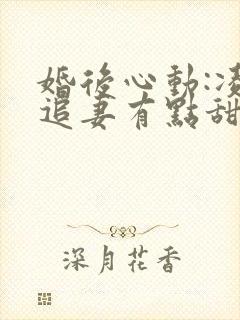 婚後心動:凌
追妻有點甜
深月花香